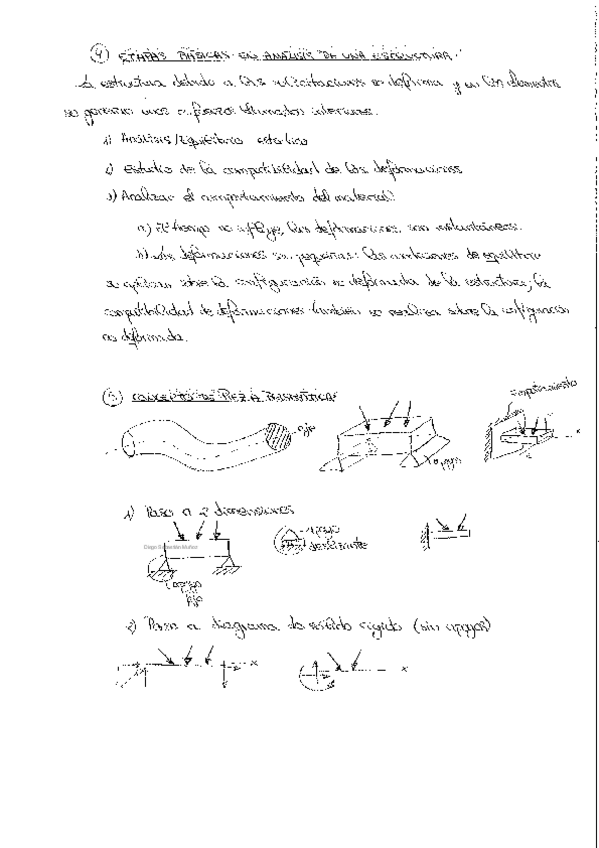 4 ETAPAS BÁSICAS EN ANÁLISIS DE UNA ESTRUCTURA
La estructura debido a las solicitaciones se deforma y en los elementos
se generan unos esfuerzos llamados interiores.
1) Análisis/Equilibrio estático
2) Estudio de la compatibilidad de las deformaciones
3) Analizar el comportamiento del material:
a) El tiempo no influye, las deformaciones son instantáneas.
b) Las deformaciones son pequeñas: las ecuaciones de equilibrio
se aplican sobre la configuración no deformada de la estructura; la
compatibilidad de deformaciones también se realiza sobre la configuración
no deformada.
5 CONCEPTO DE PIEZA PRISMÁTICA
Empotramiento
eje
apoyo
x
1) Paso a 2 dimensiones
apoyo
deslizante
apoyo
fijo
2) Paso a diagrama de sólido rígido (sin apoyos)
x
x